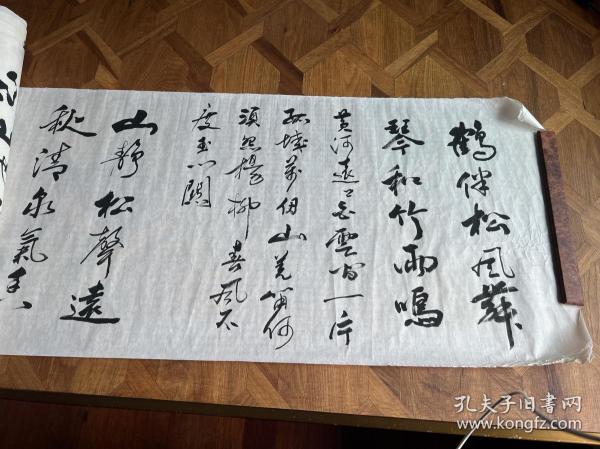 鶴伴松风舞
琴和竹雨鳴
黄河遠上白雲间一片
孤城萬仞山羌笛何
須怨楊柳春风不
度玉门關
山静松聲遠
秋清泉氣香
孔夫子旧书网
www.kongfz.com